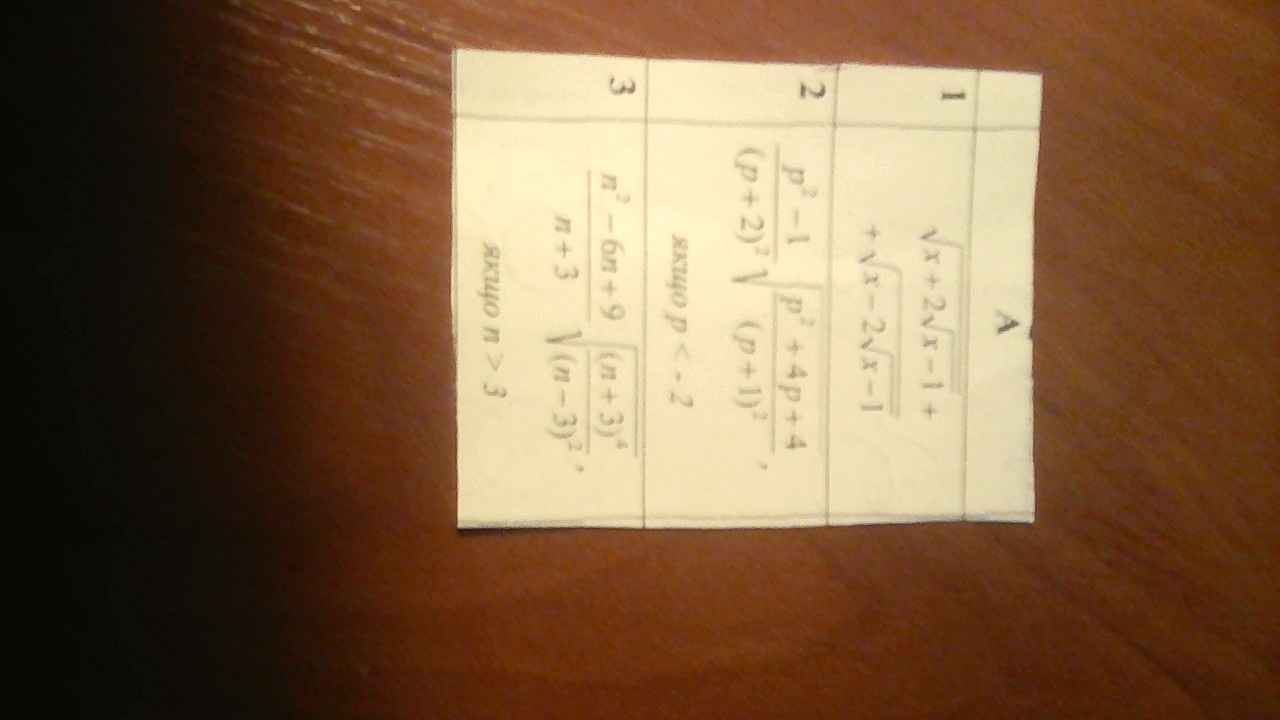 А
1
√(x + 2√(x − 1)) +
+ √(x − 2√(x − 1))
2
(p² − 1)/(p + 2)² √((p² + 4p + 4)/(p + 1)²),
якщо p < - 2
3
(n² − 6n + 9)/(n + 3) √((n + 3)⁴/(n − 3)²),
якщо n > 3